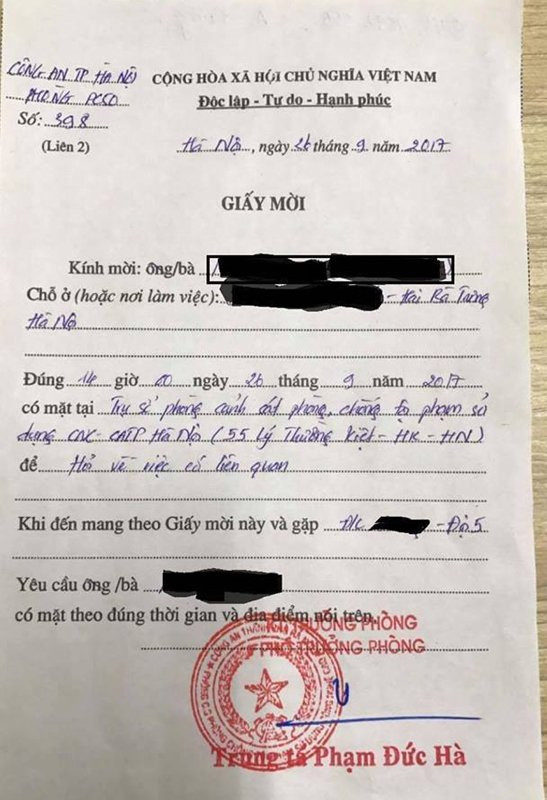 CÔNG AN TP HÀ NỘI
PHÒNG PC50
Số: 398
(Liên 2)
CỘNG HÒA XÃ HỘI CHỦ NGHĨA VIỆT NAM
Độc lập - Tự do - Hạnh phúc
Hà Nội, ngày 26 tháng 9 năm 2017
GIẤY MỜI
Kính mời: ông/bà
Chỗ ở (hoặc nơi làm việc): - Hai Bà Trưng
Hà Nội
Đúng 14 giờ 00 ngày 26 tháng 9 năm 2017
có mặt tại Trụ sở phòng cảnh sát phòng, chống tội phạm sử
dụng CNC - CATP Hà Nội (55 Lý Thường Kiệt - HK - HN)
để Hỏi về việc có liên quan
Khi đến mang theo Giấy mời này và gặp Đ/c - Đội 5
Yêu cầu ông /bà
có mặt theo đúng thời gian và địa điểm nói trên.
TRƯỞNG PHÒNG
PHÓ TRƯỞNG PHÒNG
Trung tá Phạm Đức Hà